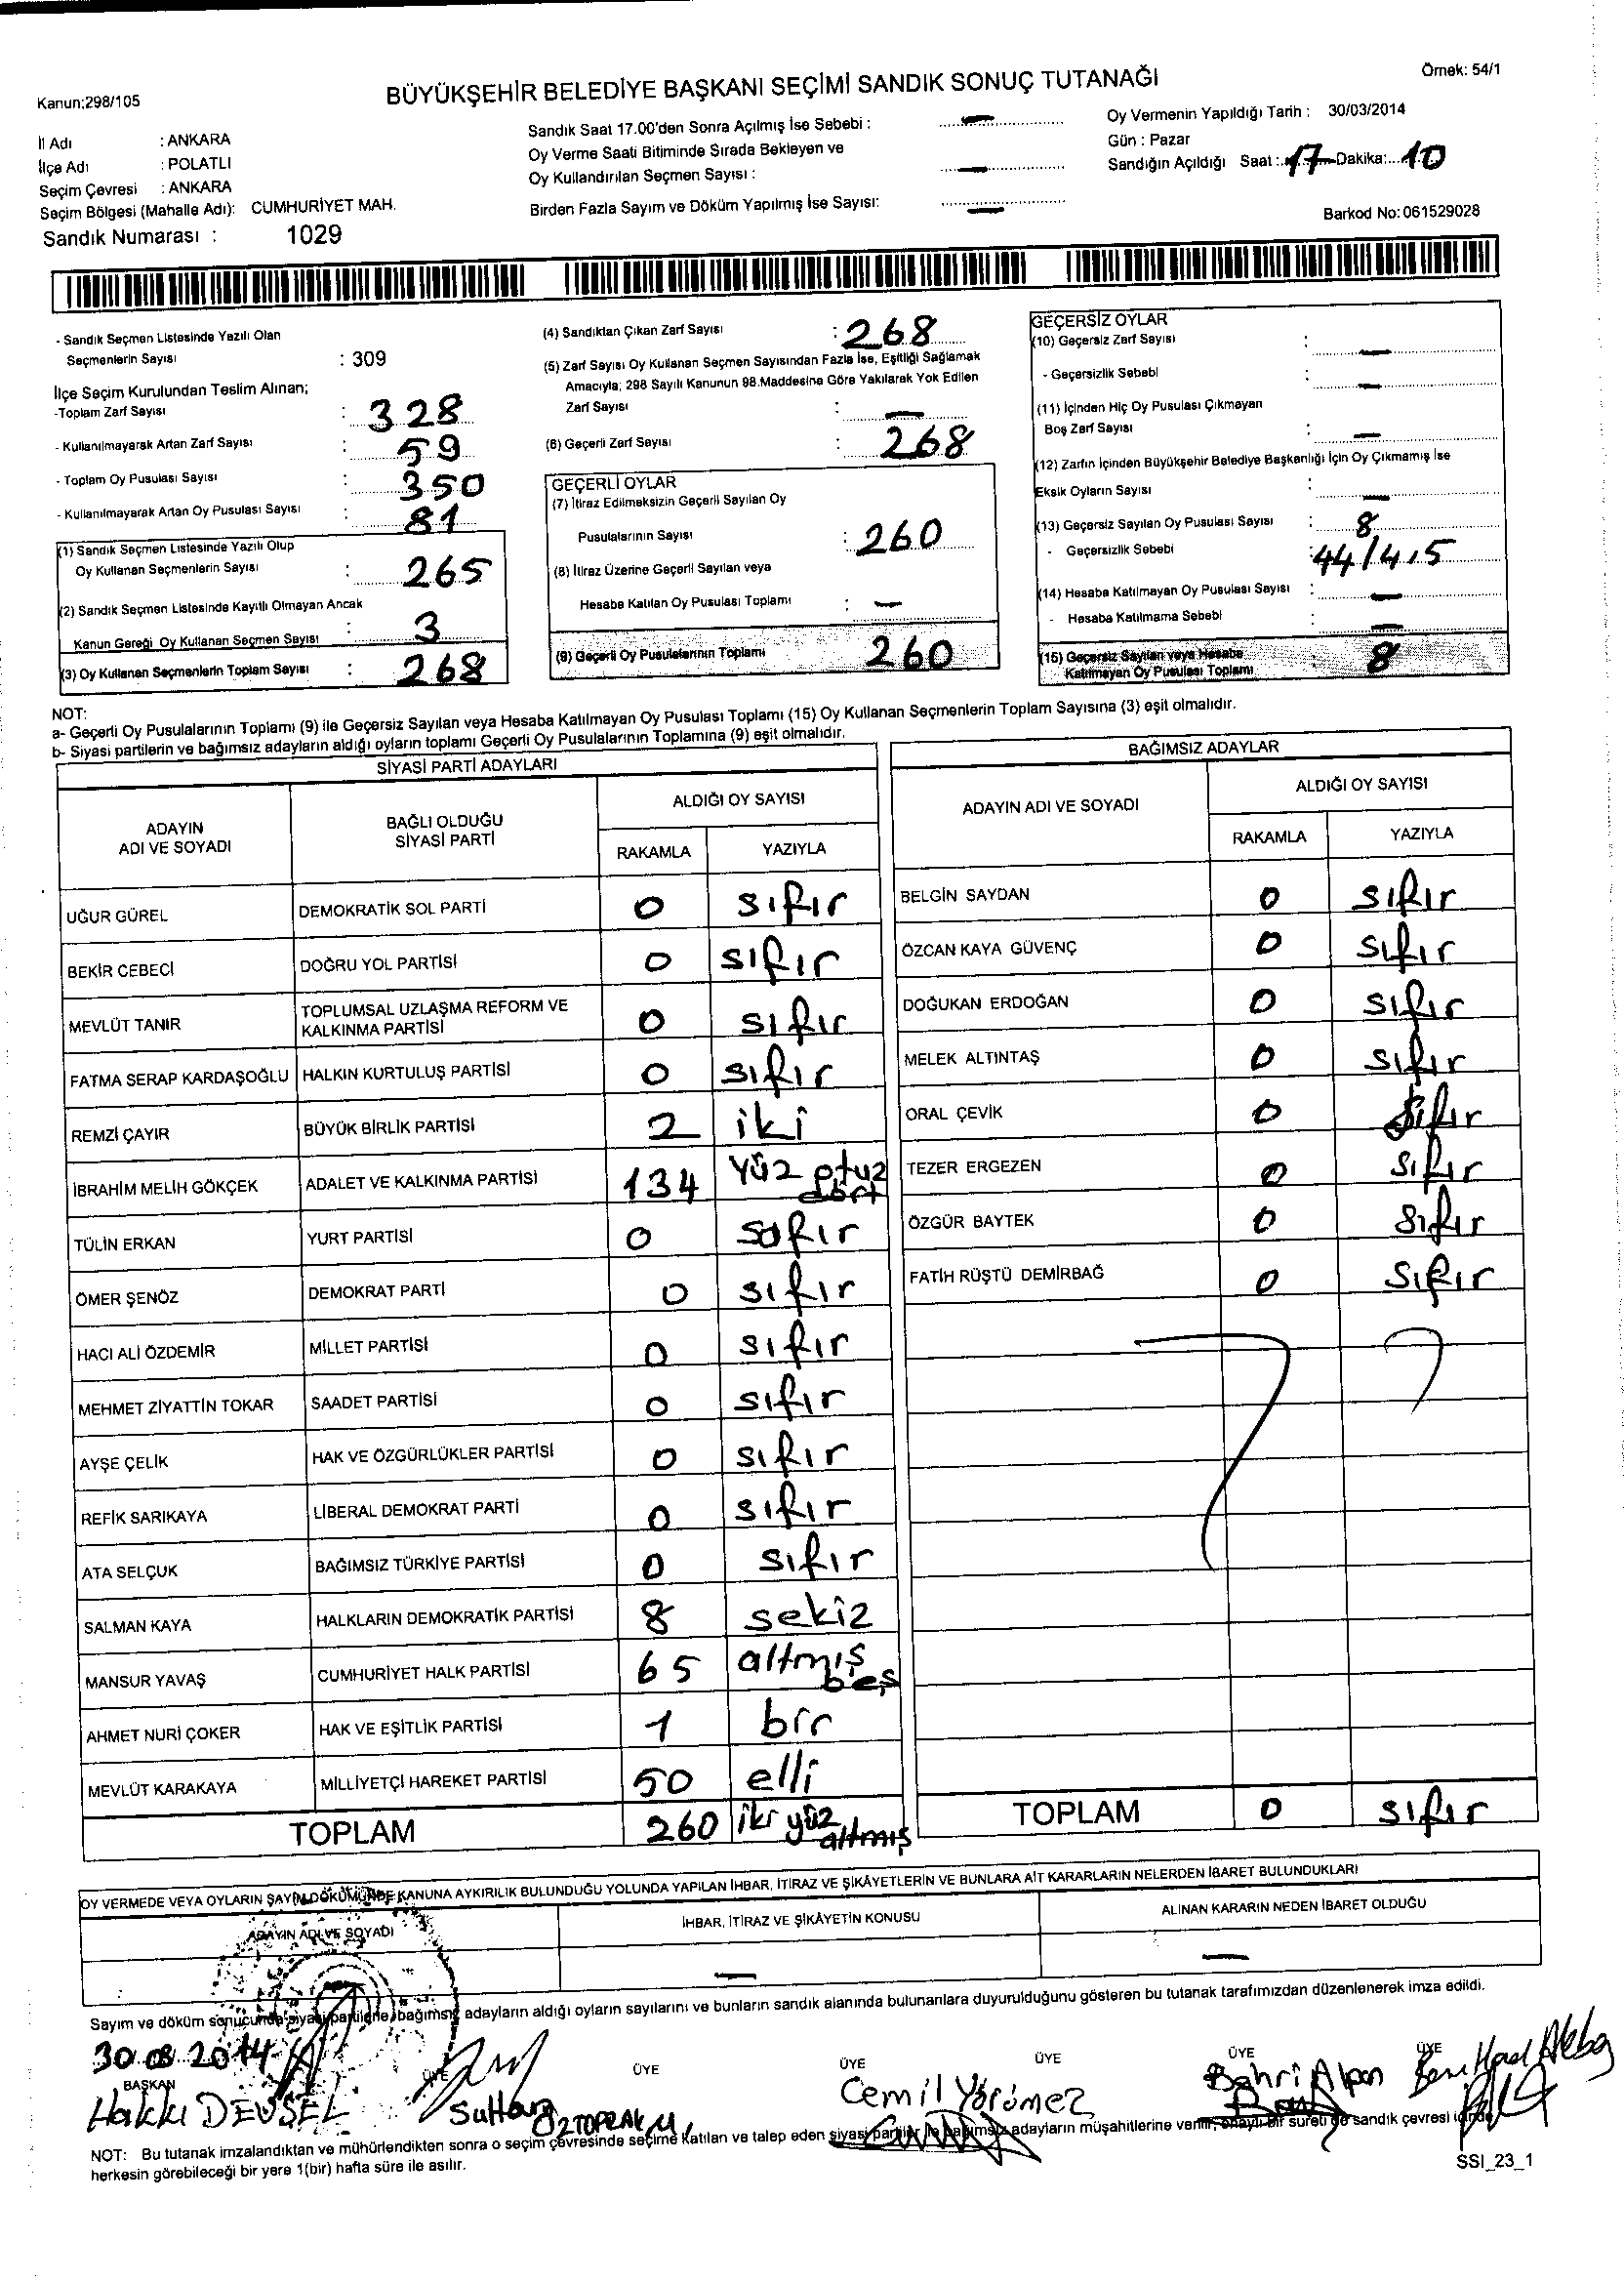 Kanun:298/105
BÜYÜKŞEHİR BELEDİYE BAŞKANI SEÇİMİ SANDIK SONUÇ TUTANAĞI
Örnek: 54/1
İl Adı : ANKARA
İlçe Adı : POLATLI
Seçim Çevresi : ANKARA
Seçim Bölgesi (Mahalle Adı): CUMHURİYET MAH.
Sandık Numarası : 1029
Sandık Saat 17.00'den Sonra Açılmış İse Sebebi : —
Oy Verme Saati Bitiminde Sırada Bekleyen ve
Oy Kullandırılan Seçmen Sayısı : —
Birden Fazla Sayım ve Döküm Yapılmış İse Sayısı: —
Oy Vermenin Yapıldığı Tarih : 30/03/2014
Gün : Pazar
Sandığın Açıldığı Saat : 17 Dakika: 10
Barkod No: 061529028
- Sandık Seçmen Listesinde Yazılı Olan
Seçmenlerin Sayısı : 309
İlçe Seçim Kurulundan Teslim Alınan;
-Toplam Zarf Sayısı : 328
- Kullanılmayarak Artan Zarf Sayısı : 59
- Toplam Oy Pusulası Sayısı : 350
- Kullanılmayarak Artan Oy Pusulası Sayısı : 81
(1) Sandık Seçmen Listesinde Yazılı Olup
Oy Kullanan Seçmenlerin Sayısı : 265
(2) Sandık Seçmen Listesinde Kayıtlı Olmayan Ancak
Kanun Gereği Oy Kullanan Seçmen Sayısı : 3
(3) Oy Kullanan Seçmenlerin Toplam Sayısı : 268
(4) Sandıktan Çıkan Zarf Sayısı : 268
(5) Zarf Sayısı Oy Kullanan Seçmen Sayısından Fazla İse, Eşitliği Sağlamak
Amacıyla; 298 Sayılı Kanunun 98.Maddesine Göre Yakılarak Yok Edilen
Zarf Sayısı : —
(6) Geçerli Zarf Sayısı : 268
GEÇERLİ OYLAR
(7) İtiraz Edilmeksizin Geçerli Sayılan Oy
Pusulalarının Sayısı : 260
(8) İtiraz Üzerine Geçerli Sayılan veya
Hesaba Katılan Oy Pusulası Toplamı : —
(9) Geçerli Oy Pusulalarının Toplamı 260
GEÇERSİZ OYLAR
(10) Geçersiz Zarf Sayısı : —
- Geçersizlik Sebebi : —
(11) İçinden Hiç Oy Pusulası Çıkmayan
Boş Zarf Sayısı : —
(12) Zarfın İçinden Büyükşehir Belediye Başkanlığı İçin Oy Çıkmamış İse
Eksik Oyların Sayısı : —
(13) Geçersiz Sayılan Oy Pusulası Sayısı : 8
- Geçersizlik Sebebi : 44/4,5
(14) Hesaba Katılmayan Oy Pusulası Sayısı : —
- Hesaba Katılmama Sebebi : —
(15) Geçersiz Sayılan veya Hesaba
Katılmayan Oy Pusulası Toplamı 8
NOT:
a- Geçerli Oy Pusulalarının Toplamı (9) ile Geçersiz Sayılan veya Hesaba Katılmayan Oy Pusulası Toplamı (15) Oy Kullanan Seçmenlerin Toplam Sayısına (3) eşit olmalıdır.
b- Siyasi partilerin ve bağımsız adayların aldığı oyların toplamı Geçerli Oy Pusulalarının Toplamına (9) eşit olmalıdır.
SİYASİ PARTİ ADAYLARI
ADAYIN ADI VE SOYADI BAĞLI OLDUĞU SİYASİ PARTİ ALDIĞI OY SAYISI
RAKAMLA YAZIYLA
UĞUR GÜREL DEMOKRATİK SOL PARTİ 0 sıfır
BEKİR CEBECİ DOĞRU YOL PARTİSİ 0 sıfır
MEVLÜT TANIR TOPLUMSAL UZLAŞMA REFORM VE KALKINMA PARTİSİ 0 sıfır
FATMA SERAP KARDAŞOĞLU HALKIN KURTULUŞ PARTİSİ 0 sıfır
REMZİ ÇAYIR BÜYÜK BİRLİK PARTİSİ 2 iki
İBRAHİM MELİH GÖKÇEK ADALET VE KALKINMA PARTİSİ 134 yüz otuz dört
TÜLİN ERKAN YURT PARTİSİ 0 sıfır
ÖMER ŞENÖZ DEMOKRAT PARTİ 0 sıfır
HACI ALİ ÖZDEMİR MİLLET PARTİSİ 0 sıfır
MEHMET ZİYATTİN TOKAR SAADET PARTİSİ 0 sıfır
AYŞE ÇELİK HAK VE ÖZGÜRLÜKLER PARTİSİ 0 sıfır
REFİK SARIKAYA LİBERAL DEMOKRAT PARTİ 0 sıfır
ATA SELÇUK BAĞIMSIZ TÜRKİYE PARTİSİ 0 sıfır
SALMAN KAYA HALKLARIN DEMOKRATİK PARTİSİ 8 sekiz
MANSUR YAVAŞ CUMHURİYET HALK PARTİSİ 65 altmış beş
AHMET NURİ ÇOKER HAK VE EŞİTLİK PARTİSİ 1 bir
MEVLÜT KARAKAYA MİLLİYETÇİ HAREKET PARTİSİ 50 elli
TOPLAM 260 iki yüz altmış
BAĞIMSIZ ADAYLAR
ADAYIN ADI VE SOYADI ALDIĞI OY SAYISI
RAKAMLA YAZIYLA
BELGİN SAYDAN 0 sıfır
ÖZCAN KAYA GÜVENÇ 0 sıfır
DOĞUKAN ERDOĞAN 0 sıfır
MELEK ALTINTAŞ 0 sıfır
ORAL ÇEVİK 0 sıfır
TEZER ERGEZEN 0 sıfır
ÖZGÜR BAYTEK 0 sıfır
FATİH RÜŞTÜ DEMİRBAĞ 0 sıfır
TOPLAM 0 sıfır
OY VERMEDE VEYA OYLARIN SAYIM DÖKÜMÜNDE KANUNA AYKIRILIK BULUNDUĞU YOLUNDA YAPILAN İHBAR, İTİRAZ VE ŞİKÂYETLERİN VE BUNLARA AİT KARARLARIN NELERDEN İBARET BULUNDUKLARI
ADAYIN ADI VE SOYADI İHBAR, İTİRAZ VE ŞİKÂYETİN KONUSU ALINAN KARARIN NEDEN İBARET OLDUĞU
— —
Sayım ve döküm sonucunda siyasi partilerle bağımsız adayların aldığı oyların sayılarını ve bunların sandık alanında bulunanlara duyurulduğunu gösteren bu tutanak tarafımızdan düzenlenerek imza edildi.
30 03 2014
BAŞKAN ÜYE ÜYE ÜYE ÜYE ÜYE ÜYE
Hakkı DEVSEL Sultan ÖZTOPRAK Cemil Yörümez Bahri Alpan
NOT: Bu tutanak imzalandıktan ve mühürlendikten sonra o seçim çevresinde seçime katılan ve talep eden siyasi partiler ile bağımsız adayların müşahitlerine verilir, onaylı bir sureti de sandık çevresi içinde
herkesin görebileceği bir yere 1(bir) hafta süre ile asılır.
SSI_23_1